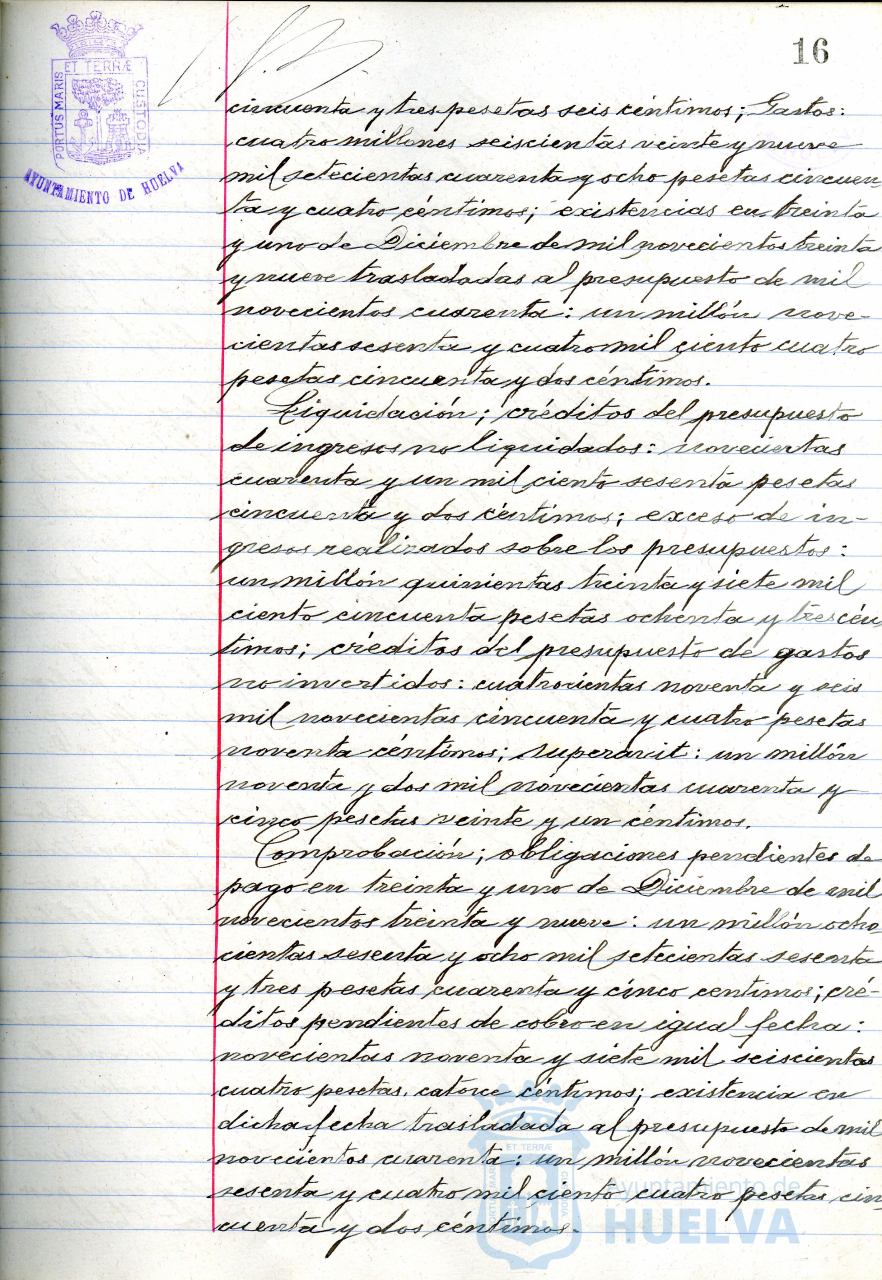 16
PORTUS MARIS ET TERRÆ CUSTODIA
AYUNTAMIENTO DE HUELVA
cincuenta y tres pesetas seis céntimos; Gastos:
cuatro millones seiscientas veinte y nueve
mil setecientas cuarenta y ocho pesetas cincuen-
ta y cuatro céntimos; existencias en treinta
y uno de Diciembre de mil novecientos treinta
y nueve trasladadas al presupuesto de mil
novecientos cuarenta: un millón nove-
cientas sesenta y cuatro mil ciento cuatro
pesetas cincuenta y dos céntimos.
Liquidación; créditos del presupuesto
de ingresos no liquidados: novecientas
cuarenta y un mil ciento sesenta pesetas
cincuenta y dos céntimos; exceso de in-
gresos realizados sobre los presupuestos:
un millón quinientas treinta y siete mil
ciento cincuenta pesetas ochenta y tres cén-
timos; créditos del presupuesto de gastos
no invertidos: cuatrocientas noventa y seis
mil novecientas cincuenta y cuatro pesetas
noventa céntimos; superavit: un millón
noventa y dos mil novecientas cuarenta y
cinco pesetas veinte y un céntimos.
Comprobación; obligaciones pendientes de
pago en treinta y uno de Diciembre de mil
novecientos treinta y nueve: un millón ocho-
cientas sesenta y ocho mil setecientas sesenta
y tres pesetas cuarenta y cinco centimos; cré-
ditos pendientes de cobro en igual fecha:
novecientas noventa y siete mil seiscientas
cuatro pesetas catorce céntimos; existencia en
dicha fecha trasladada al presupuesto de mil
novecientos cuarenta: un millón novecientas
sesenta y cuatro mil ciento cuatro pesetas cin-
cuenta y dos céntimos.
PORTUS MARIS ET TERRÆ CUSTODIA
Ayuntamiento de
HUELVA